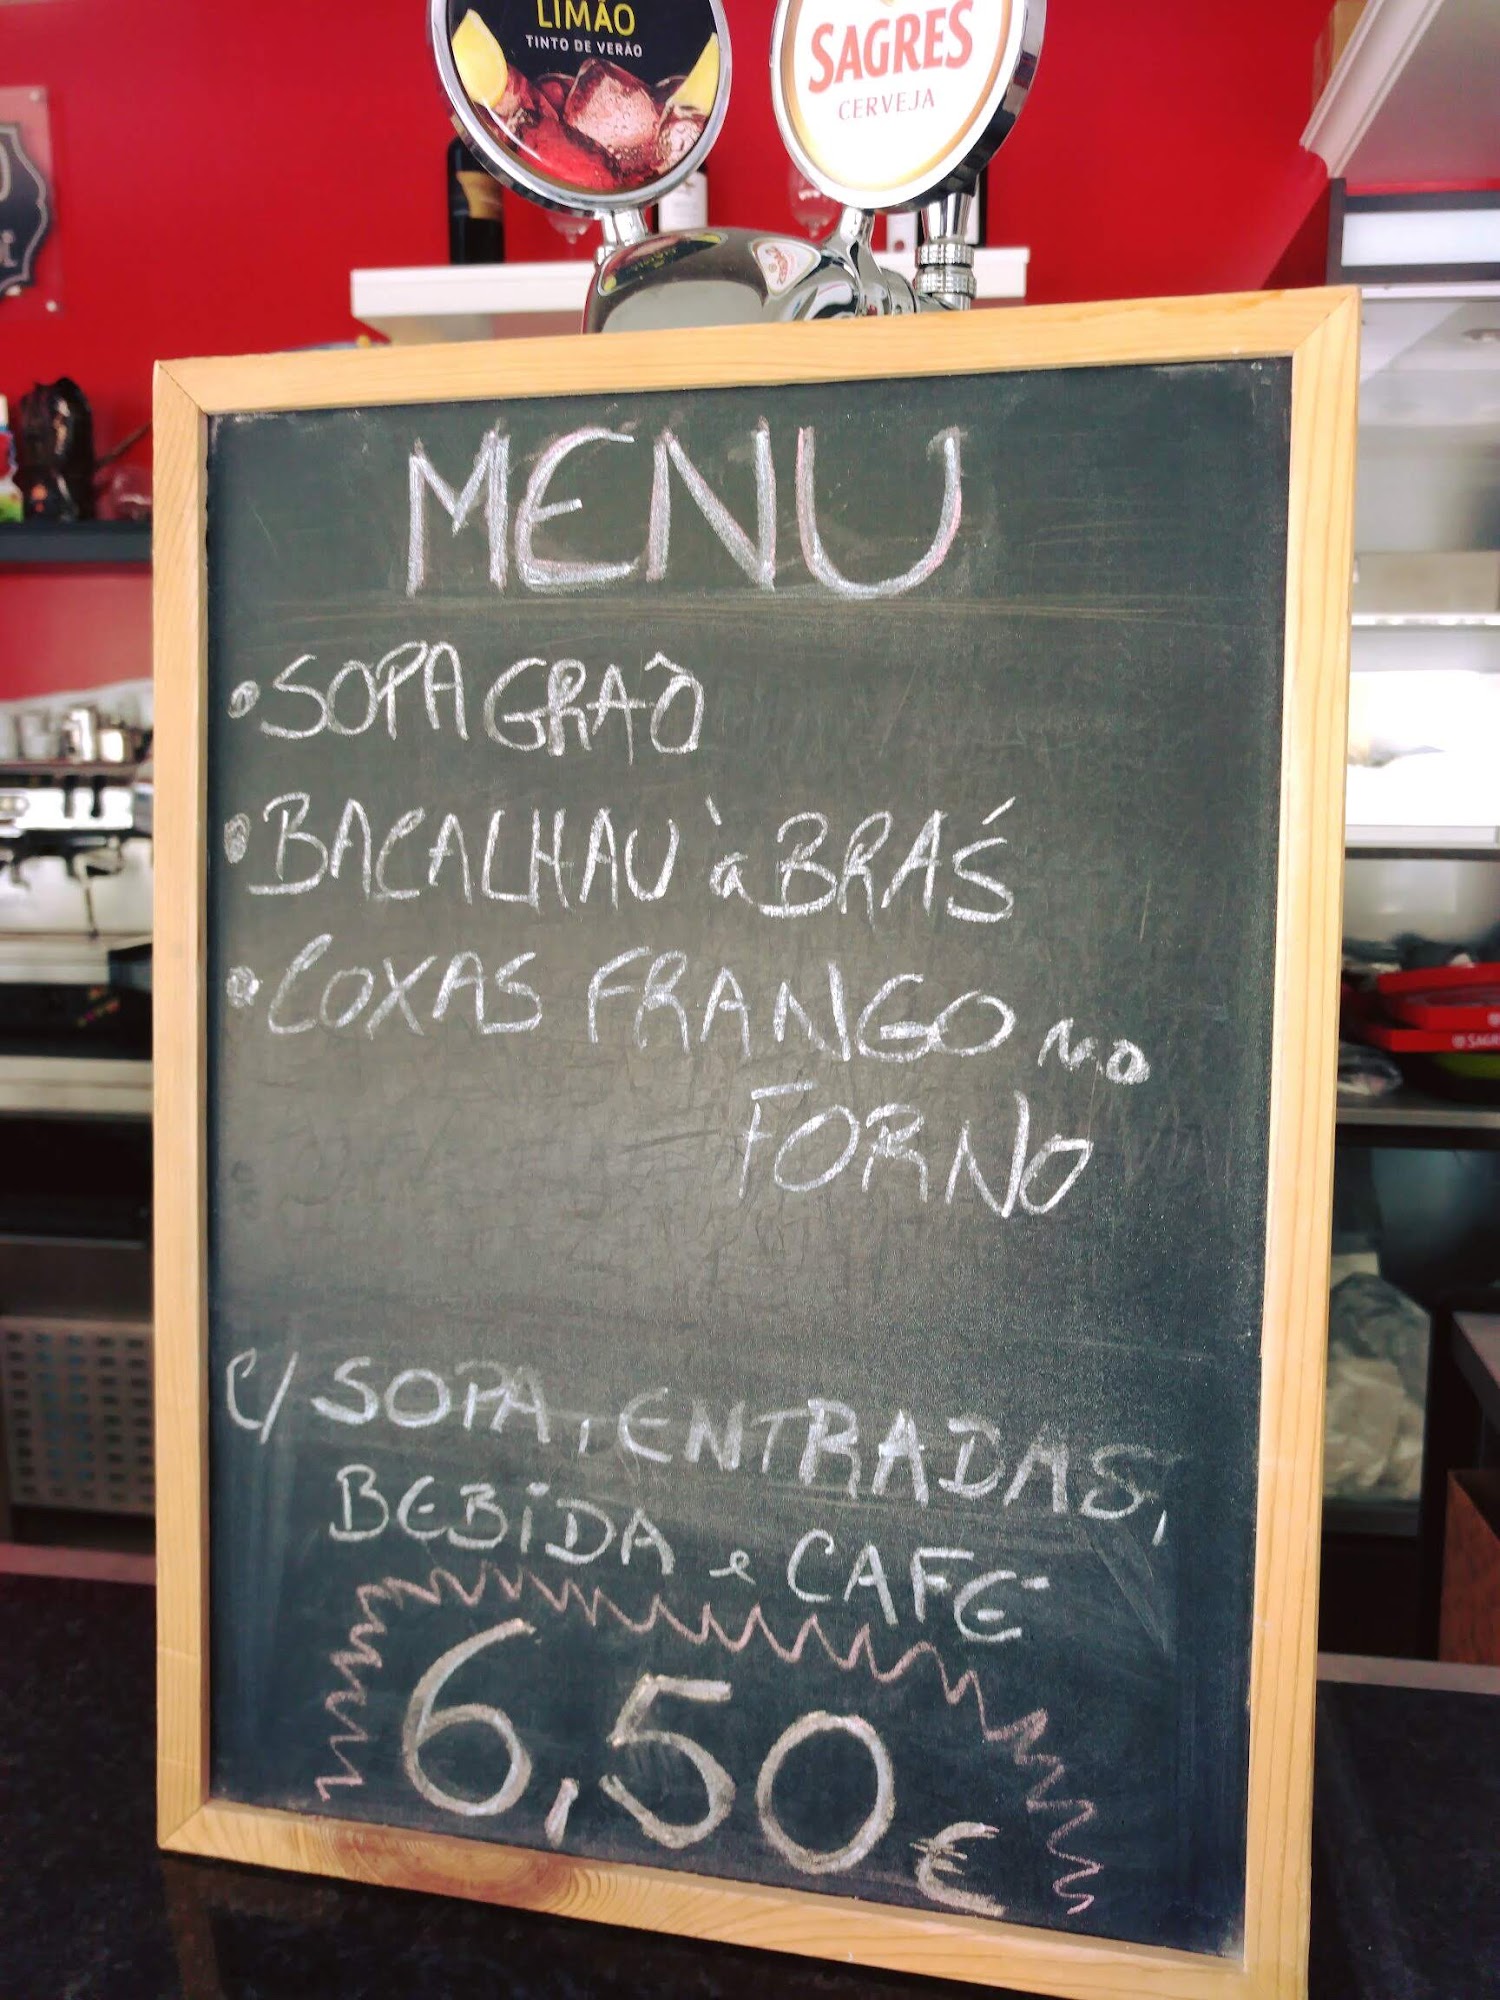 LIMÃO
TINTO DE VERÃO
SAGRES
CERVEJA
MENU
•SOPA GRAÔ
•BACALHAU à BRAŚ
•COXAS FRANGO no
FORNO
C/ SOPA, ENTRADAS,
BEBIDA e CAFÉ
6,50€
SAGRES